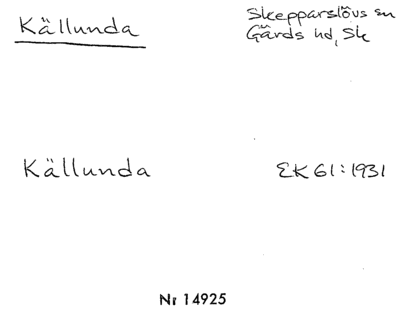 Källunda
Skepparslövs sn
Gärds hd, Sk
Källunda
EK 61:1931
Nr 14925